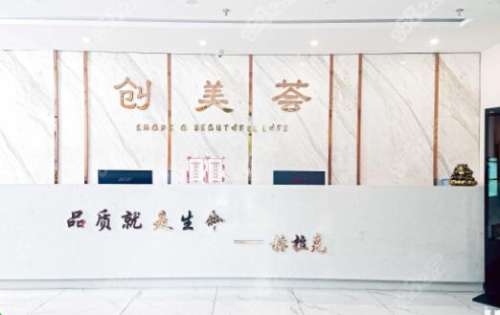 创美荟
SHAPE A BEAUTIFUL LIFE
品质就是生命